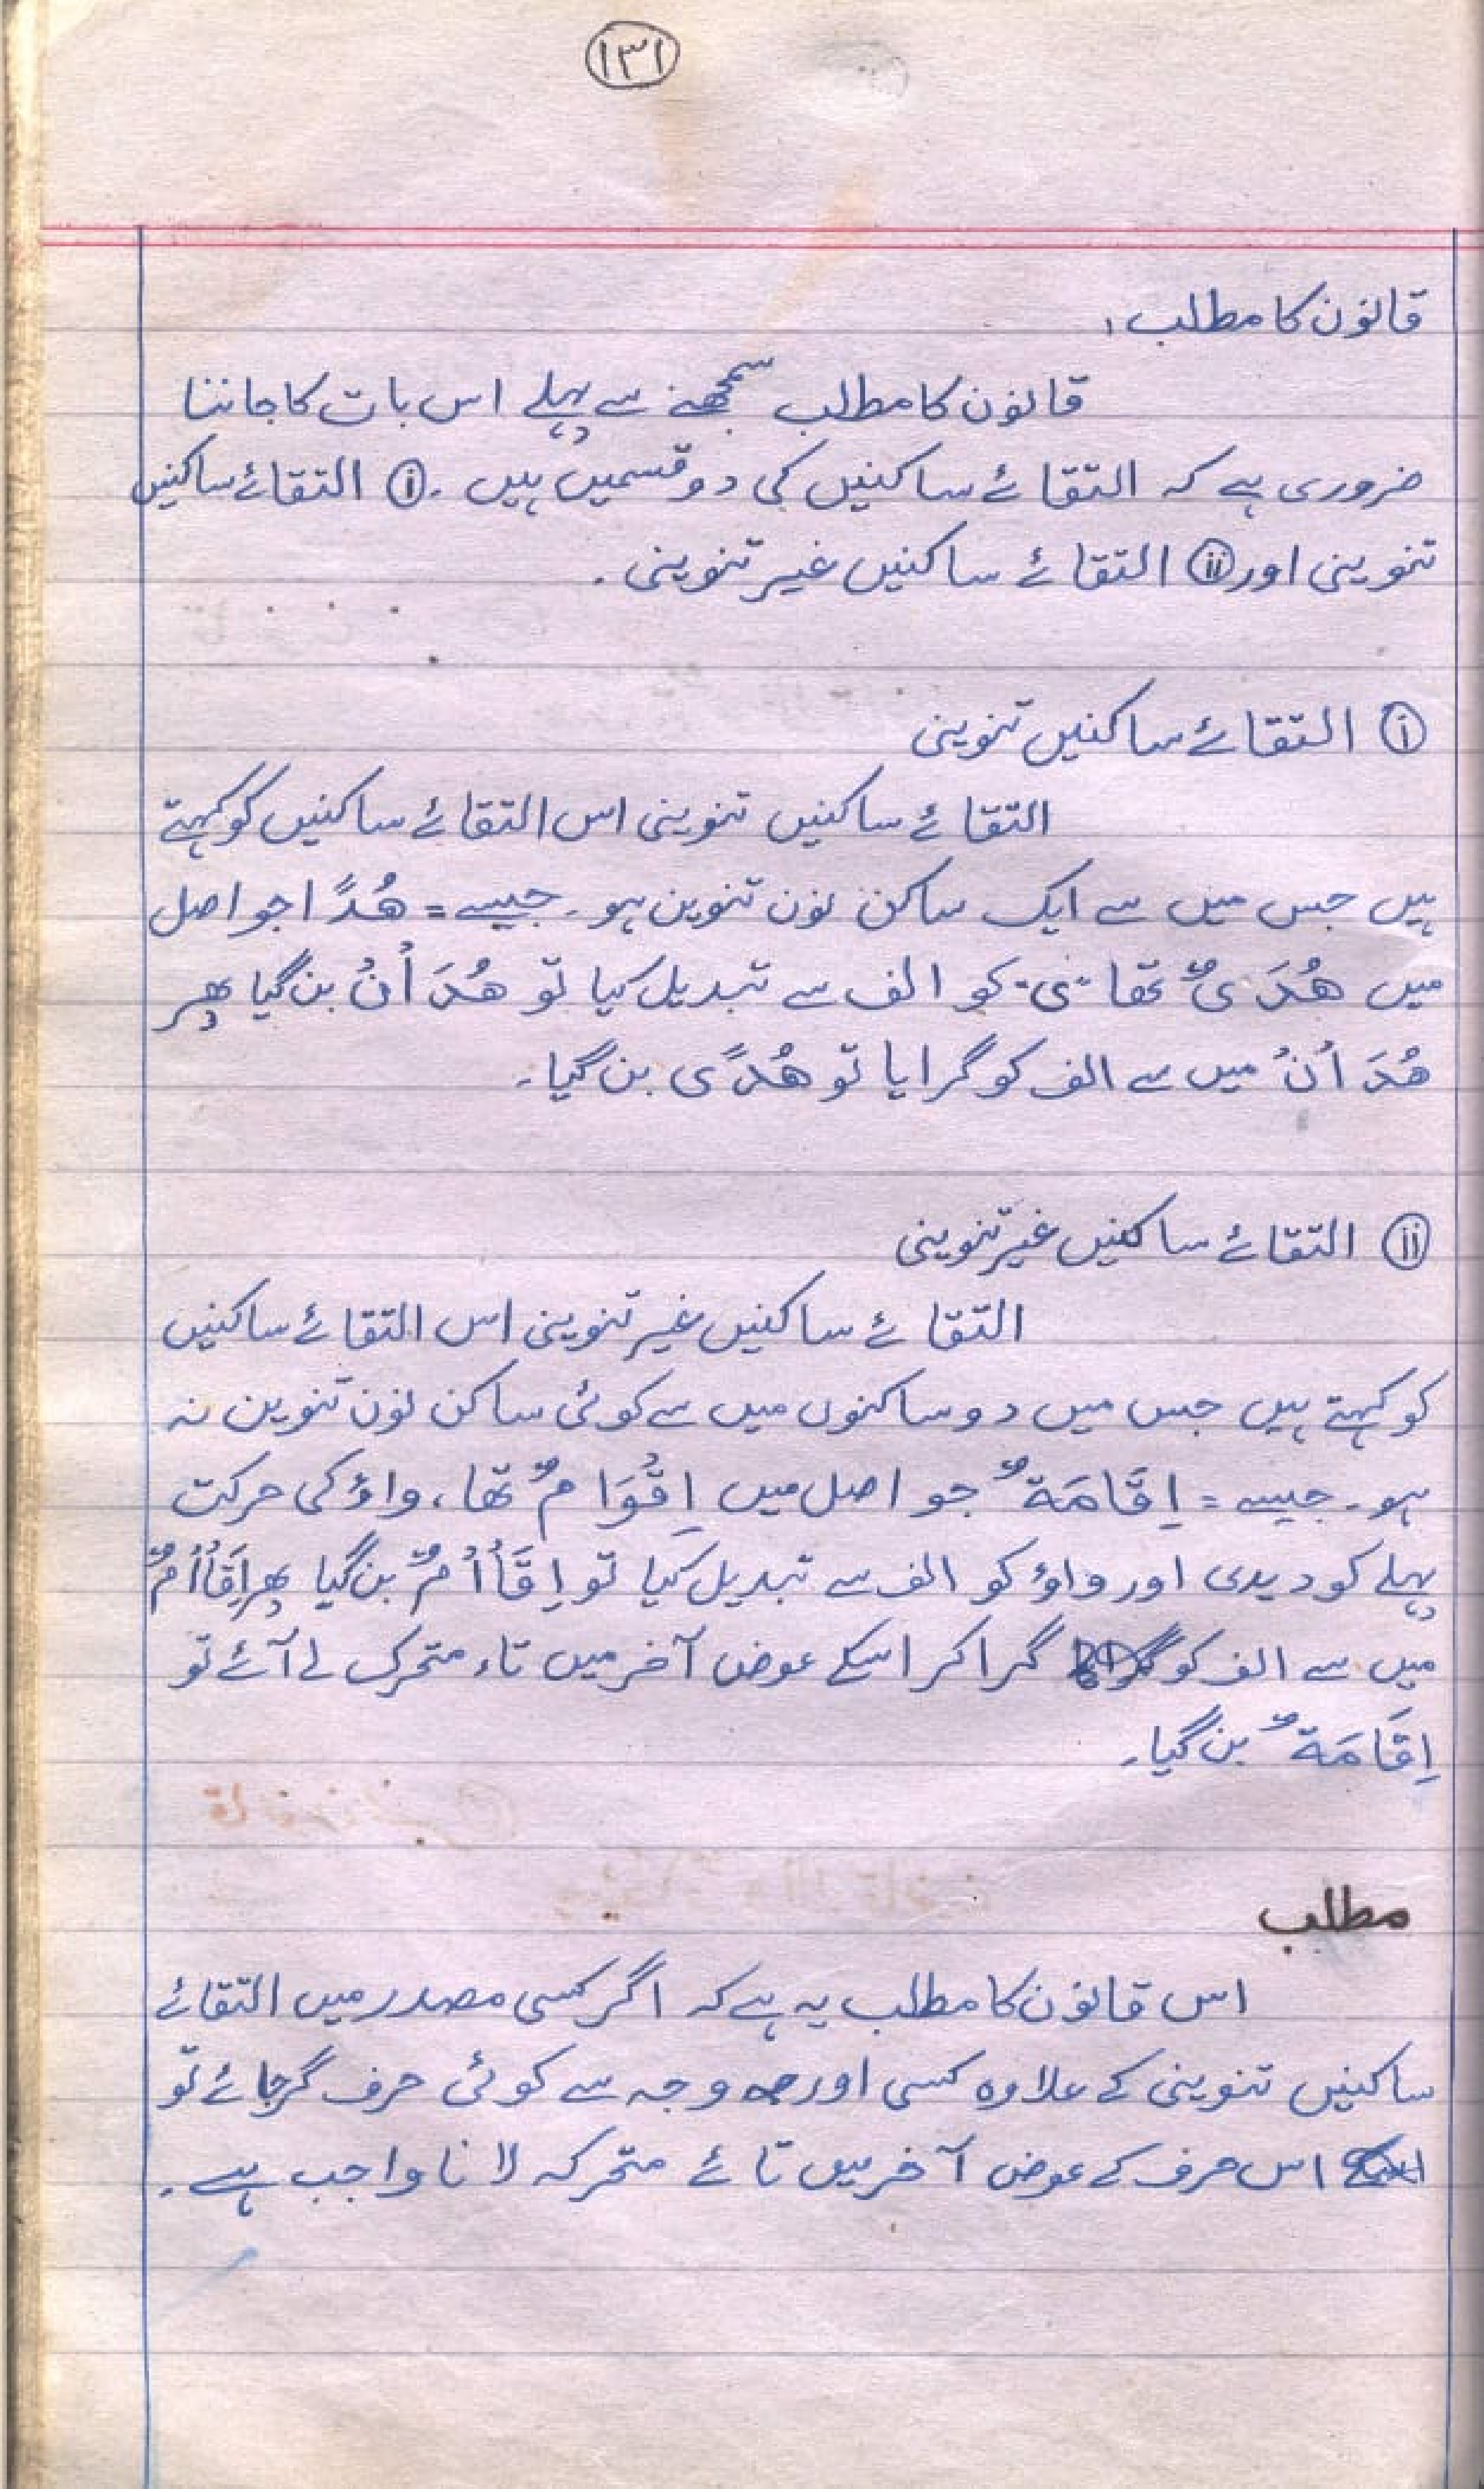 ۱۳۱
قانون کا مطلب:
قانون کا مطلب سمجھنے سے پہلے اس بات کا جاننا
ضروری ہے کہ التقائے ساکنین کی دو قسمیں ہیں ۔ (i) التقائے ساکنین
تنوینی اور (ii) التقائے ساکنین غیر تنوینی ۔
(i) التقائے ساکنین تنوینی
التقائے ساکنین تنوینی اس التقائے ساکنین کو کہتے
ہیں جس میں سے ایک ساکن نون تنوین ہو۔ جیسے = ھُدًا جو اصل
میں ھُدَیٌ تھا "ی" کو الف سے تبدیل کیا تو ھُدَاْنْ بن گیا پھر
ھُدَاْنْ میں سے الف کو گرایا تو ھُدًی بن گیا۔
(ii) التقائے ساکنین غیر تنوینی
التقائے ساکنین غیر تنوینی اس التقائے ساکنین
کو کہتے ہیں جس میں دو ساکنوں میں سے کوئی ساکن نون تنوین نہ
ہو۔ جیسے = اِقَامَةٌ جو اصل میں اِقْوَامٌ تھا، واؤ کی حرکت
پہلے کو دیدی اور واؤ کو الف سے تبدیل کیا تو اِقَاْاْمٌ بن گیا پھر اِقَاْاْمٌ
میں سے الف کو گرا کر اسکے عوض آخر میں تاء متحرک لے آئے تو
اِقَامَةٌ بن گیا۔
مطلب
اس قانون کا مطلب یہ ہے کہ اگر کسی مصدر میں التقائے
ساکنین تنوینی کے علاوہ کسی اور وجہ سے کوئی حرف گر جائے تو
اس حرف کے عوض آخر میں تائے متحرکہ لانا واجب ہے ۔